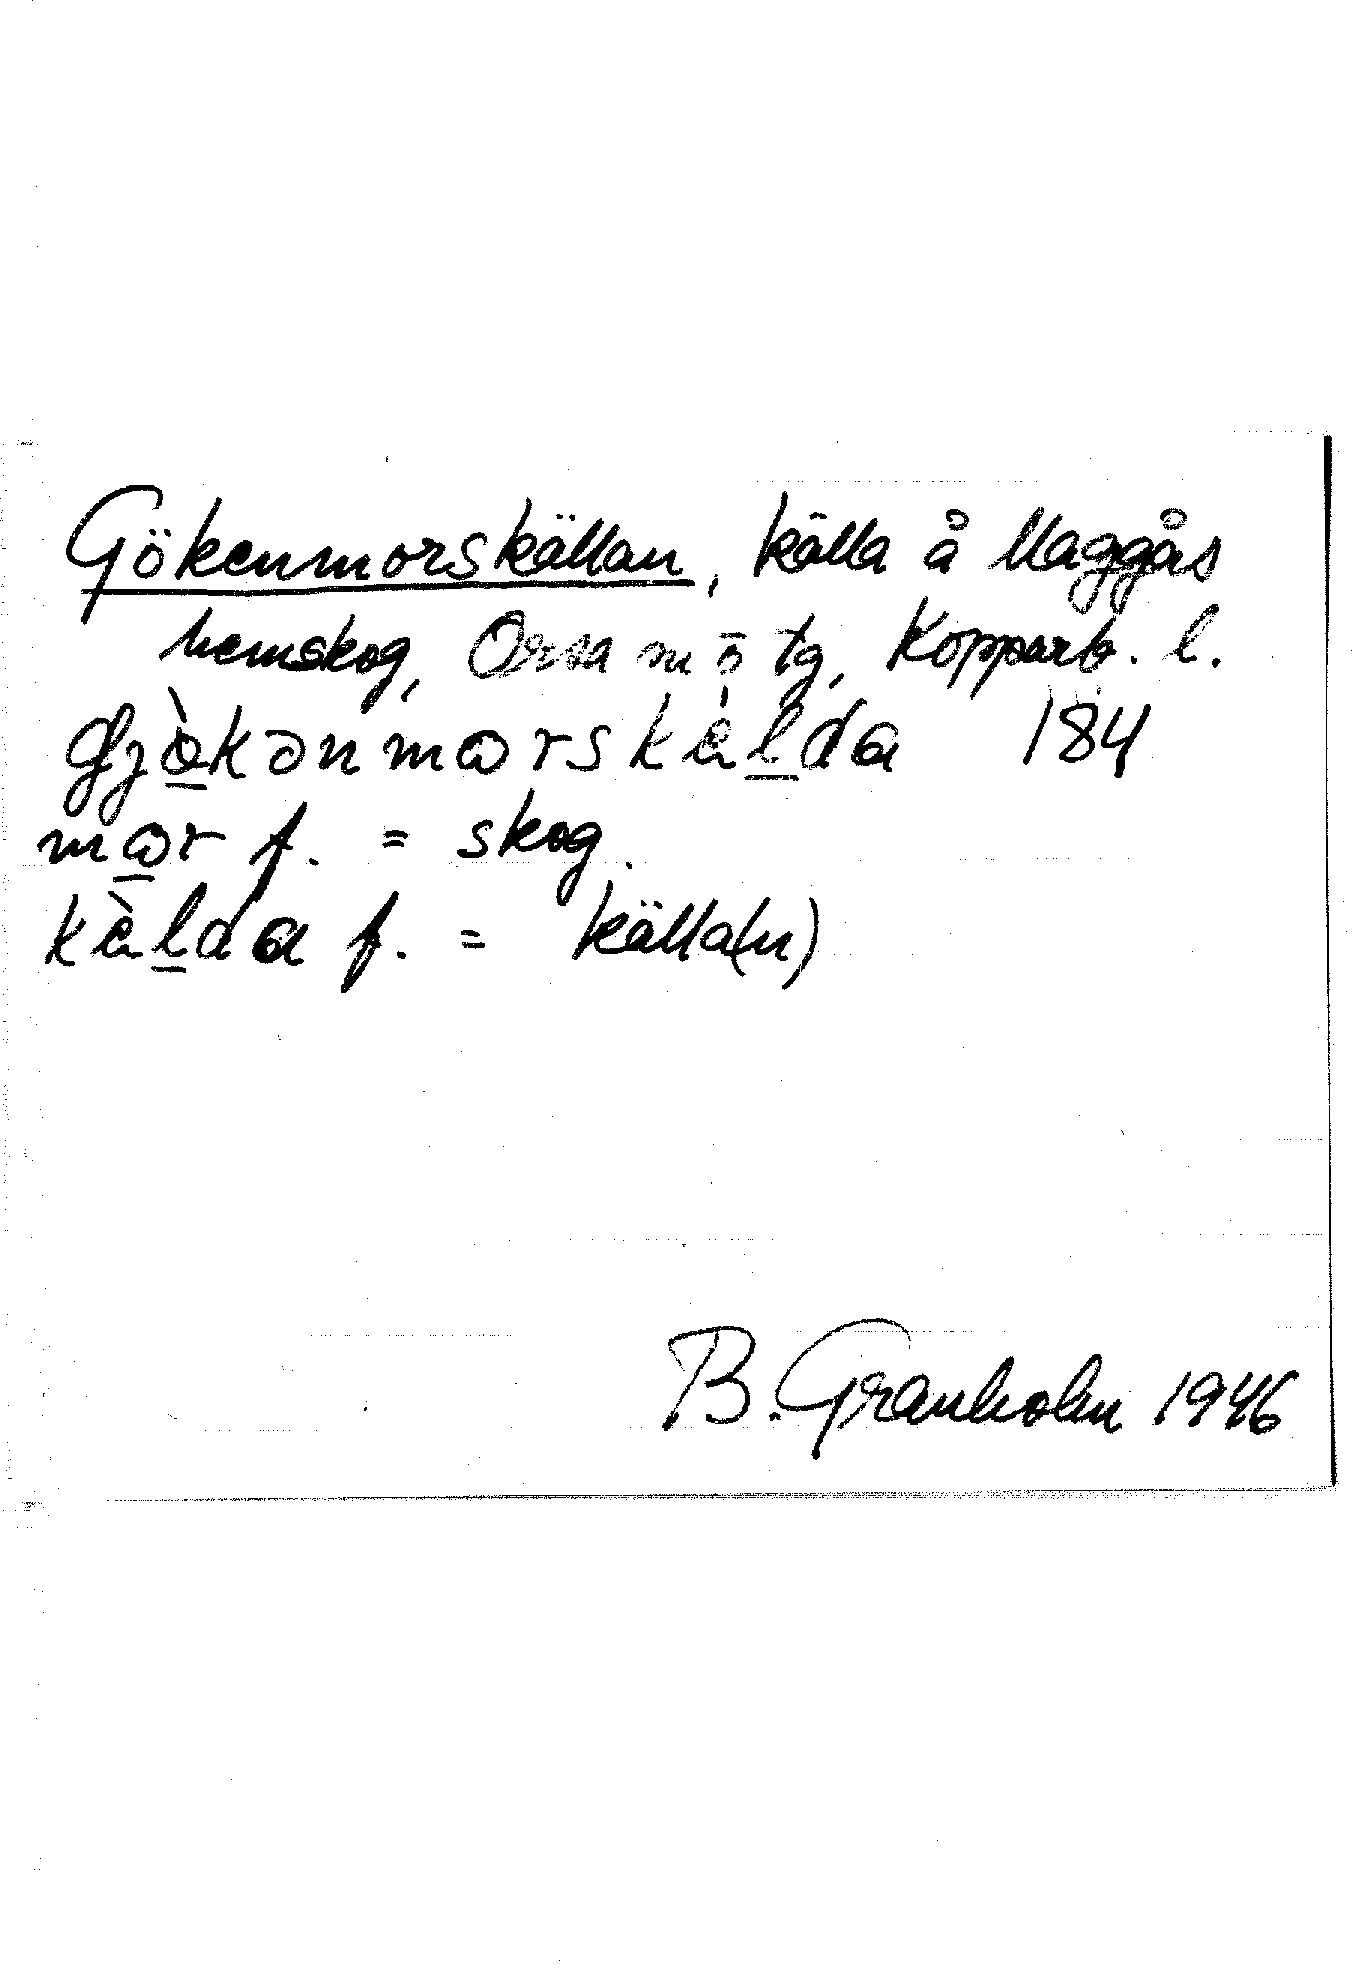 Gökenmorskällan, källa å Maggås
hemskog, Orsa sn o tg, Kopparb. l.
gjò̱kənmɷrskàḻda 184
mɷ̱r f. = skog.
kàḻda f. = källa(n)
B. Granholm 1946